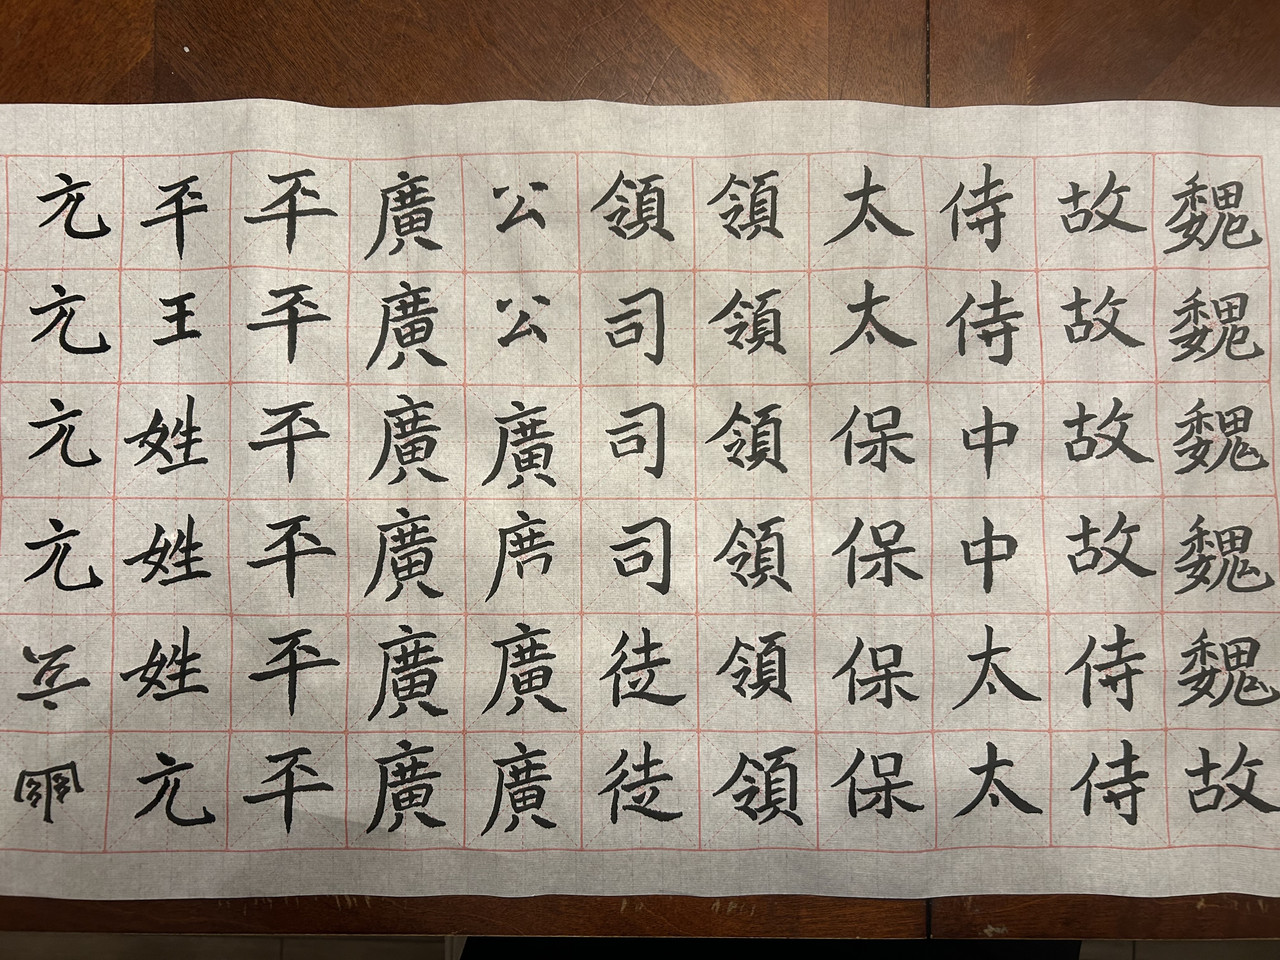 魏魏魏魏魏故
故故故故侍侍
侍侍中中太太
太太保保保保
領領領領領領
領司司司徒徒
公公廣廣廣
廣廣廣廣廣廣
平平平平平平
平王姓姓姓元
元元元元